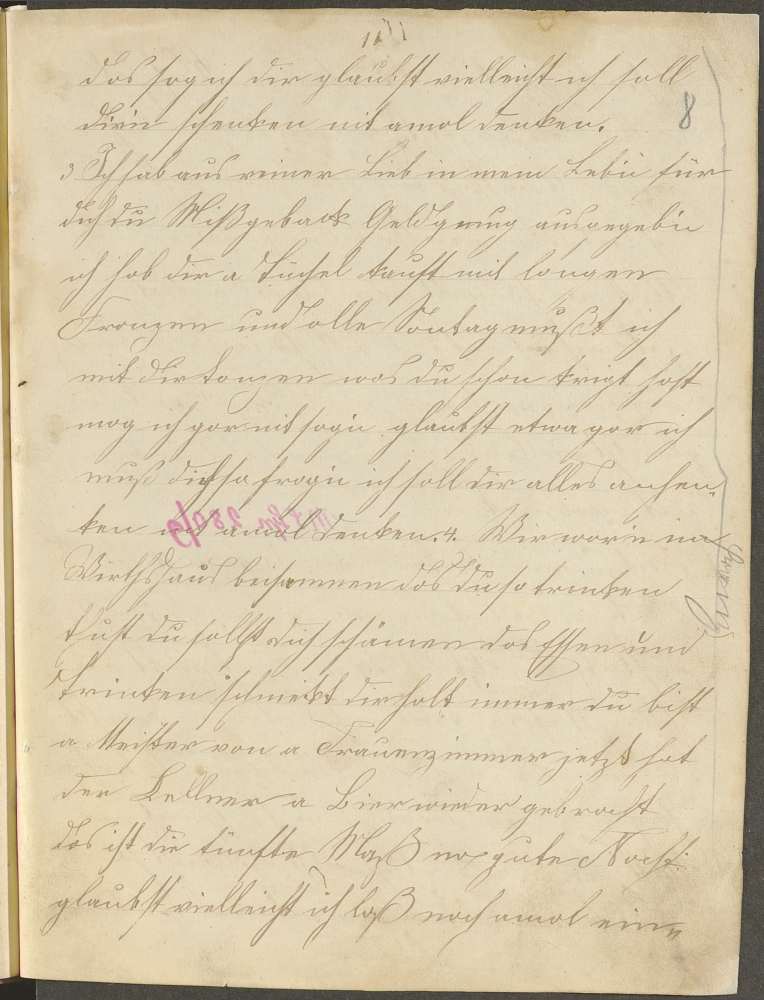 das sag ich dir glaubst vielleicht ich soll
dirn schenken nit amol denken.
3 Ich hab aus reiner Lieb in mein Lebn für
dich du Mißgeback Geld gnug ausgegebn
ich hab dir a Tüchel kauft mit langen
Franzen und alle Sontag mußt ich
mit dir tanzen was du schon krigt hast
mag ich gar nit sagn glaubst etwa gar ich
muß dich so fragn ich soll dir alles anhen„
ken nit amol denken. 4. Wir warn im
Wirthshaus beisammen das du so trinken
thust du sollst dich schämen das Essen und
Trinken schmekt dir halt immer du bist
a Meister von a Frauenzimmer jetzt hat
der Kellner a Bier wieder gebracht
das ist die fünfte Maß na gute Nacht
glaubst vielleicht ich laß noch amol ein„
8
289/9